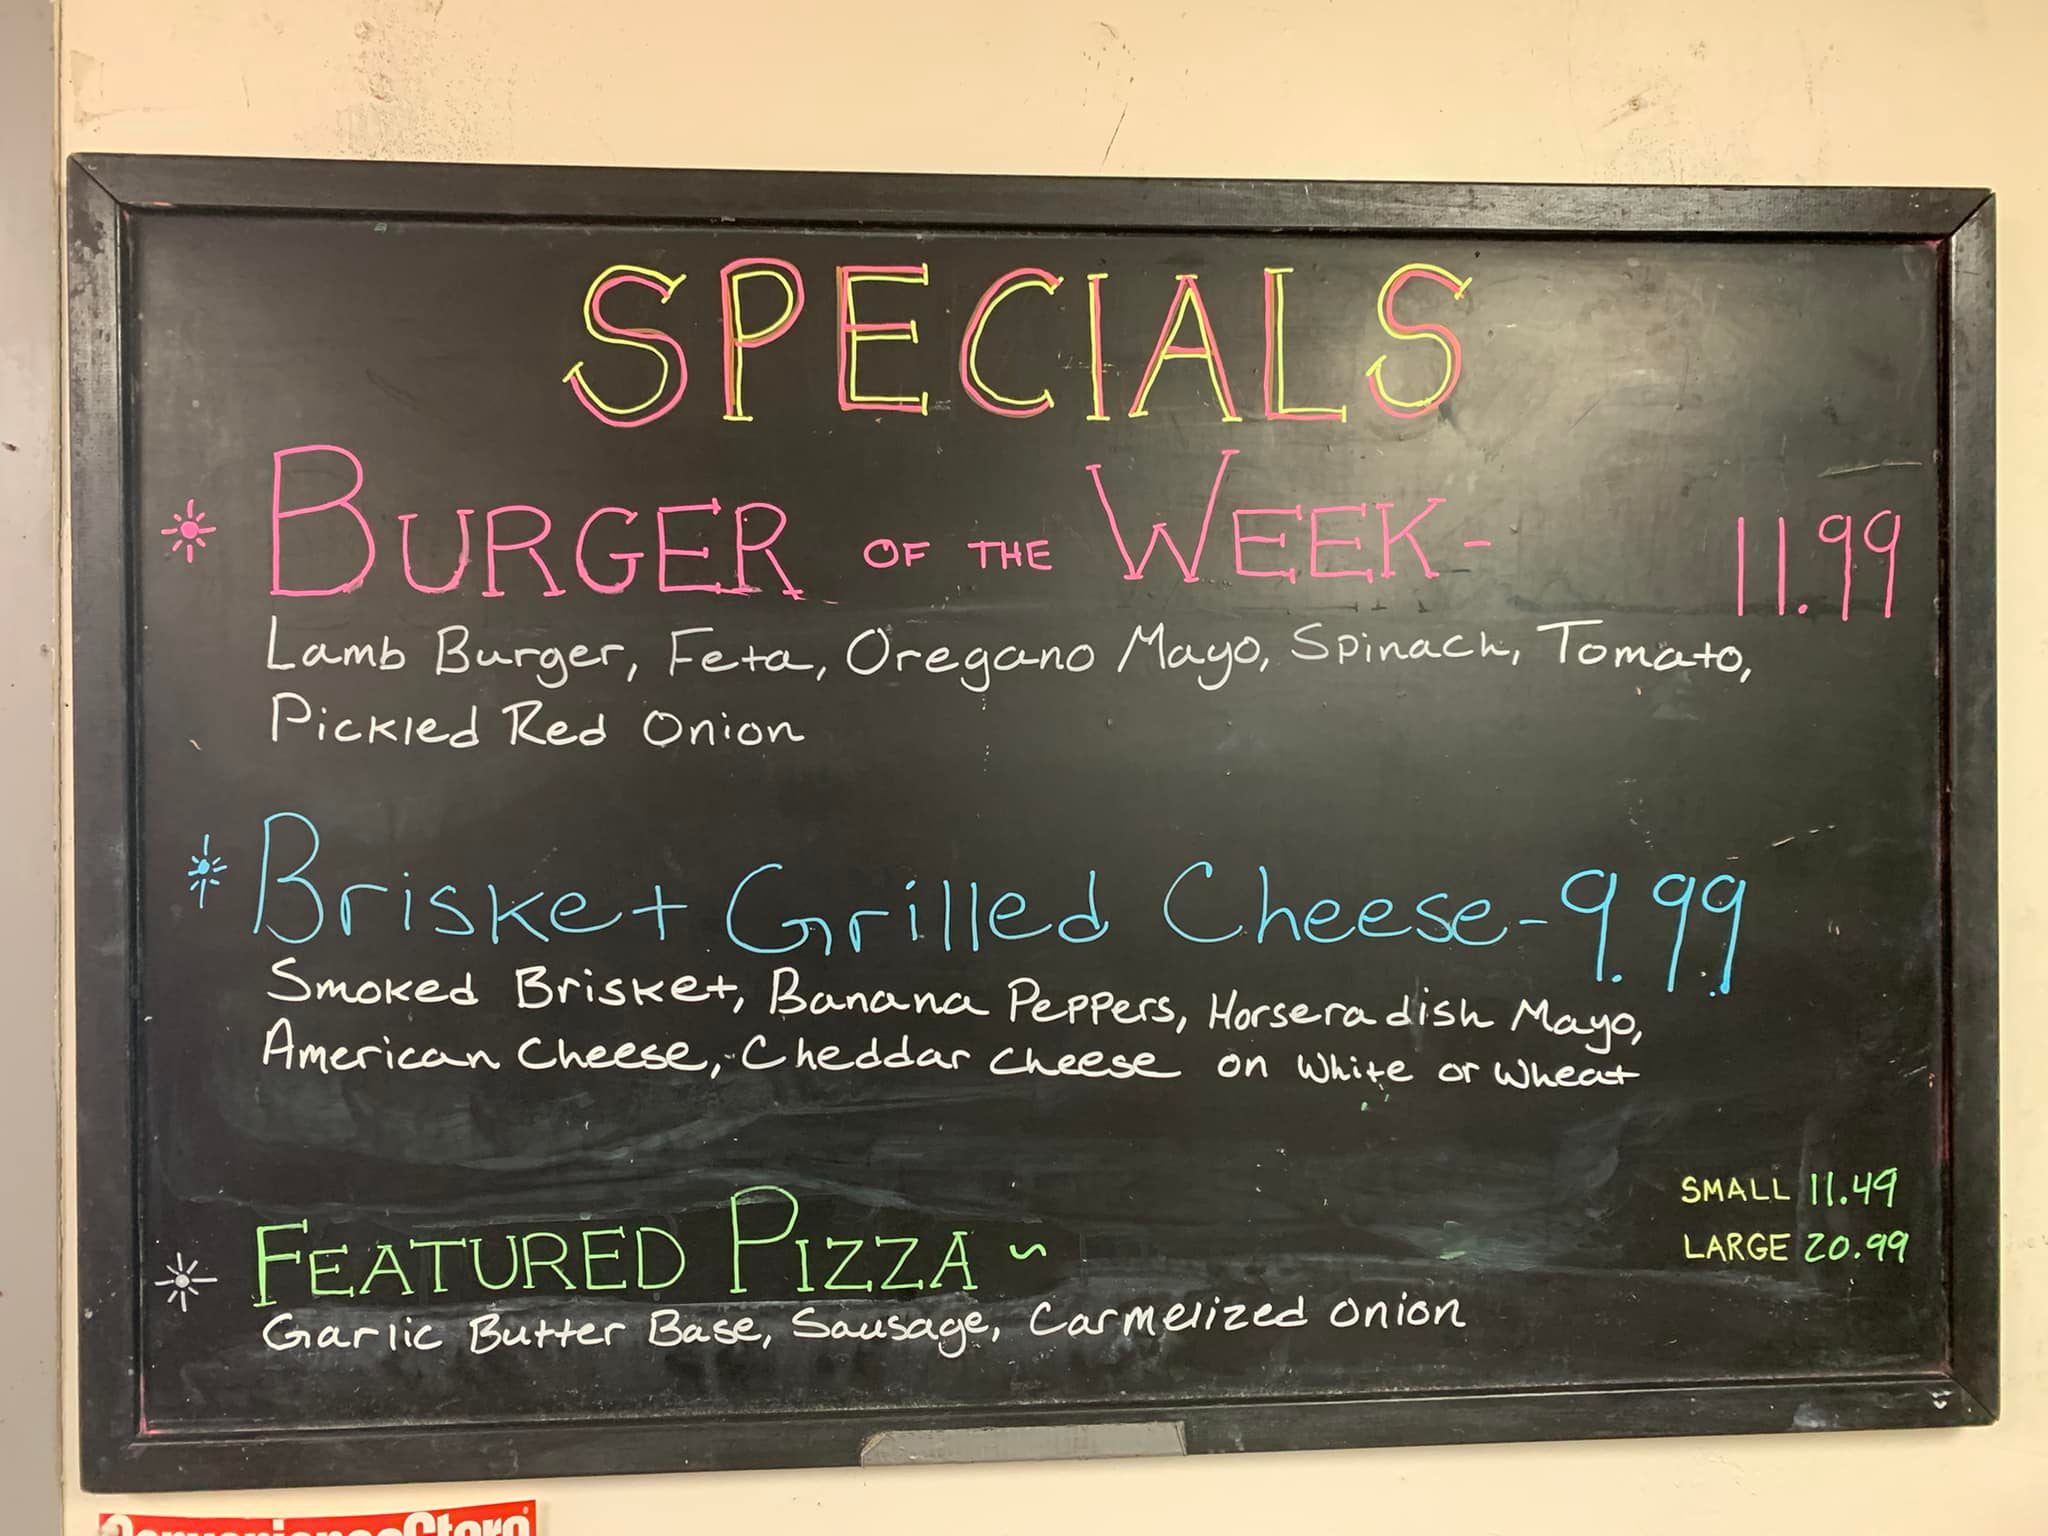 SPECIALS
BURGER OF THE WEEK - 11.99
Lamb Burger, Feta, Oregano Mayo, Spinach, Tomato,
Pickled Red Onion
Brisket Grilled Cheese - 9.99
Smoked Brisket, Banana Peppers, Horseradish Mayo,
American Cheese, Cheddar Cheese on White or Wheat
SMALL 11.49
LARGE 20.99
FEATURED PIZZA ~
Garlic Butter Base, Sausage, Carmelized Onion
ConvenienceStore